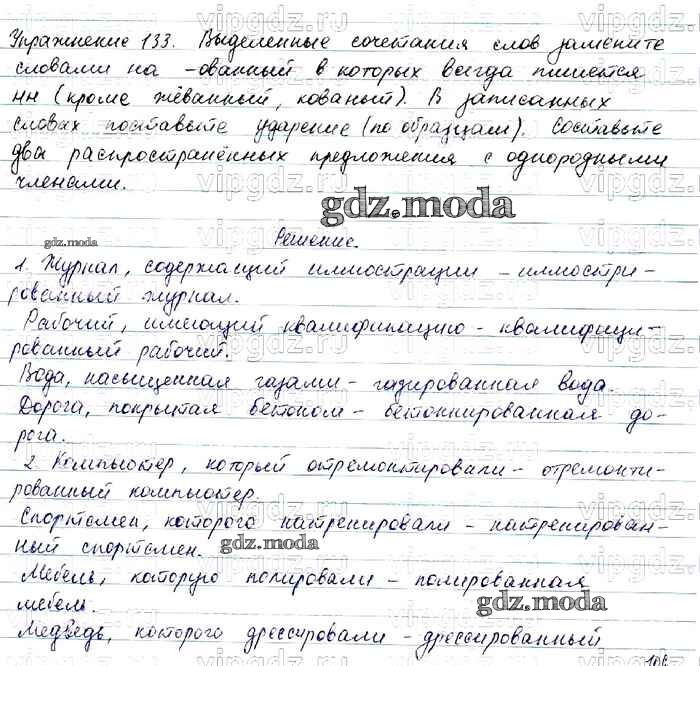 Упражнение 133. Выделенные сочетания слов замените
словами на -ованный в которых всегда пишется
нн (кроме жёванный, кованый). В записанных
словах поставьте ударение (по образцам). Составьте
два распространённых предложения с однородными
членами.
gdz.moda
Решение.
gdz.moda
1. Журнал, содержащий иллюстрации - иллюстри-
рованный журнал.
Рабочий, имеющий квалификацию - квалифици-
рованный рабочий.
Вода, насыщенная газами - газированная вода.
Дорога, покрытая бетоном - бетоннированная до-
рога.
2. Компьютер, который отремонтировали - отремонти-
рованный компьютер.
Спортсмен, которого натренировали - натренирован-
ный спортсмен.
gdz.moda
Мебель, которую полировали - полированная
мебель.
gdz.moda
Медведь, которого дрессировали - дрессированный